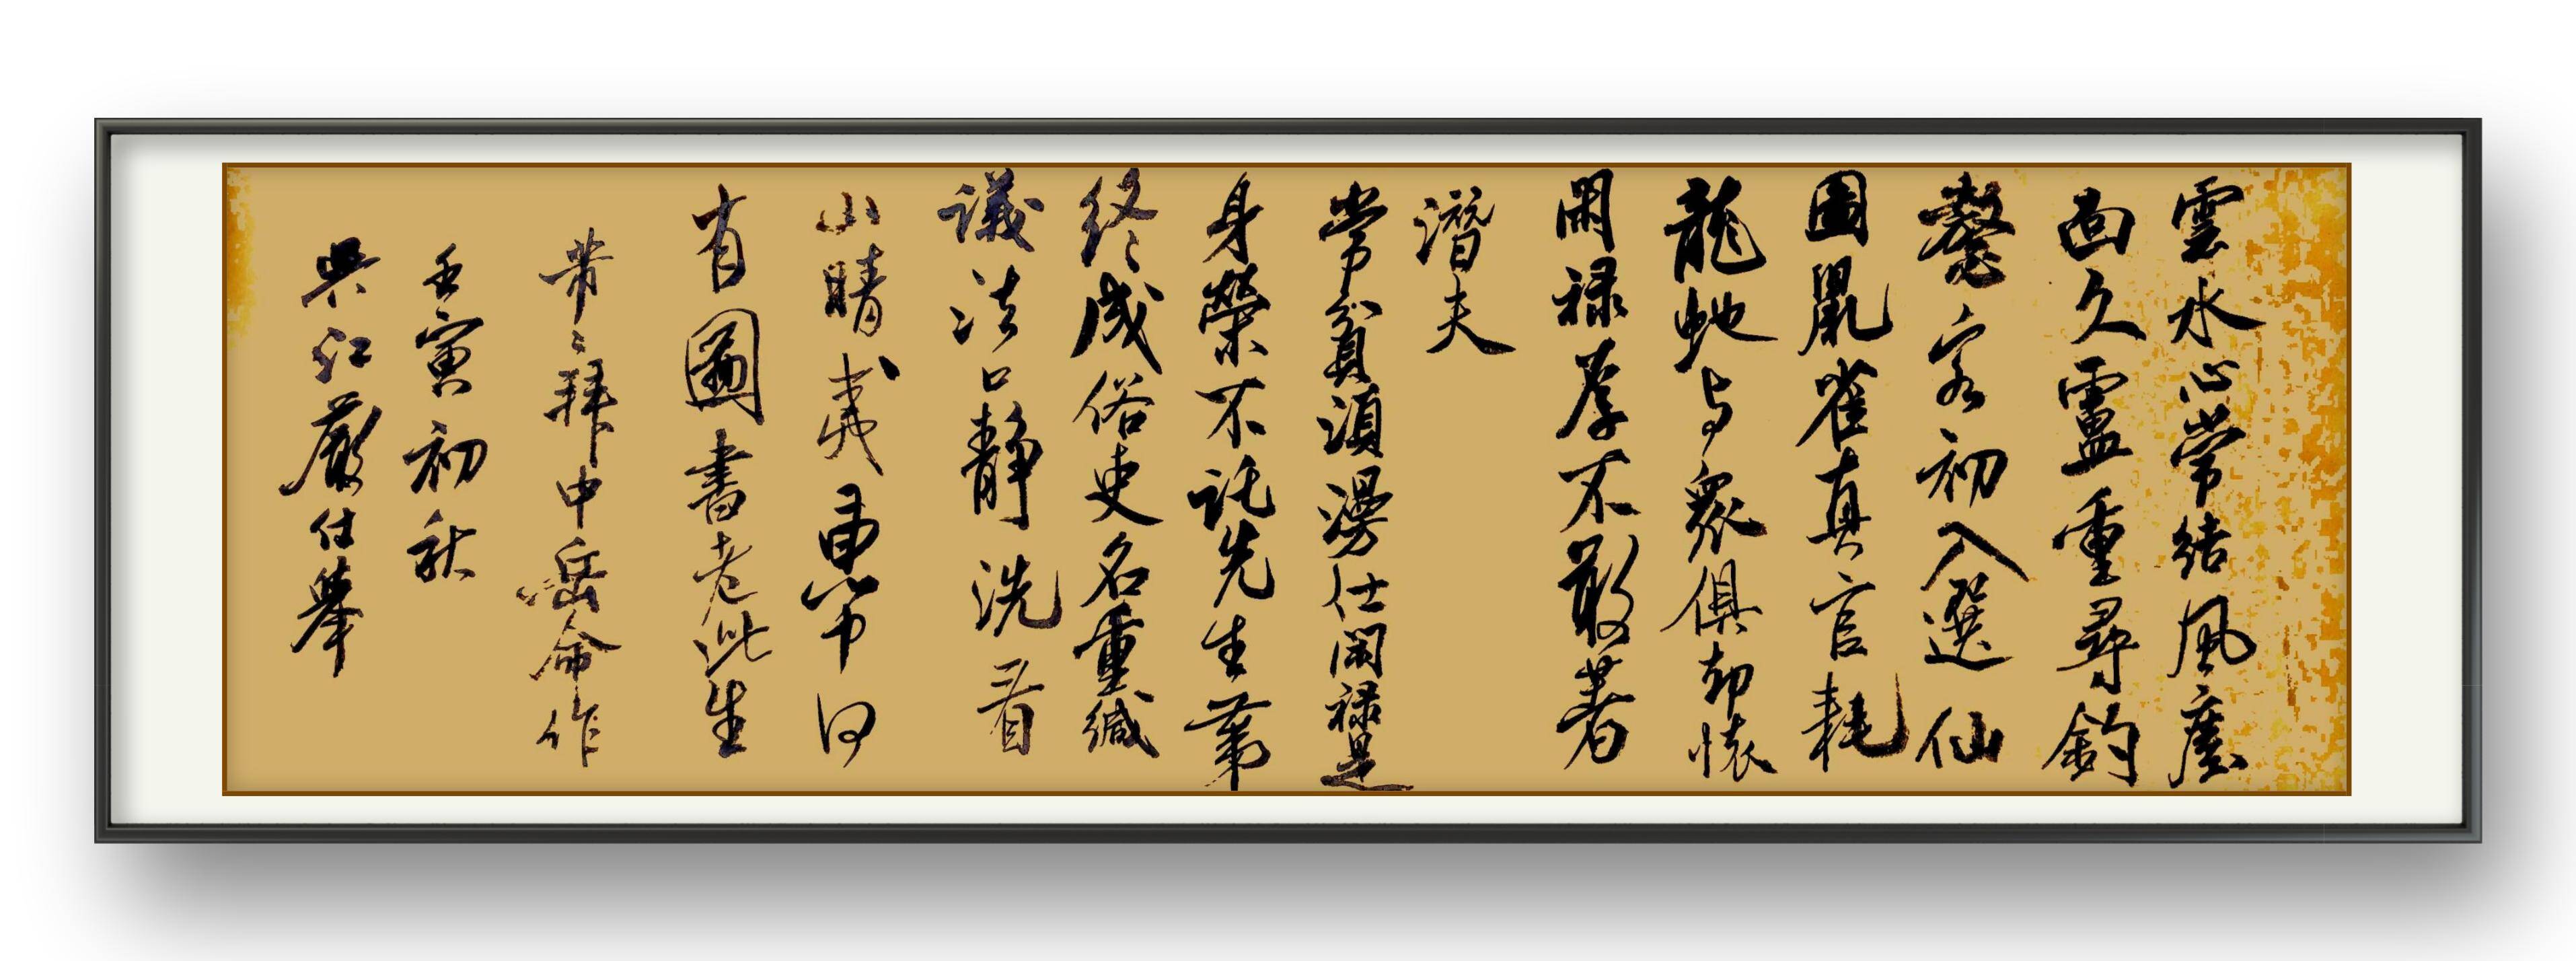 雲水心常結風塵
面久盧重尋釣
鰲客初入選仙
圖鼠雀真官耗
龍蛇與衆俱却懷
閑祿厚不敢著
潛夫
常貧須漫仕閑祿是
身榮不託先生第
終終成俗吏名重緘
議法口靜洗看
山晴夷惠中何
有圖書老此生
芾芾拜中岳命作
壬寅初秋
吳江嚴仕舉